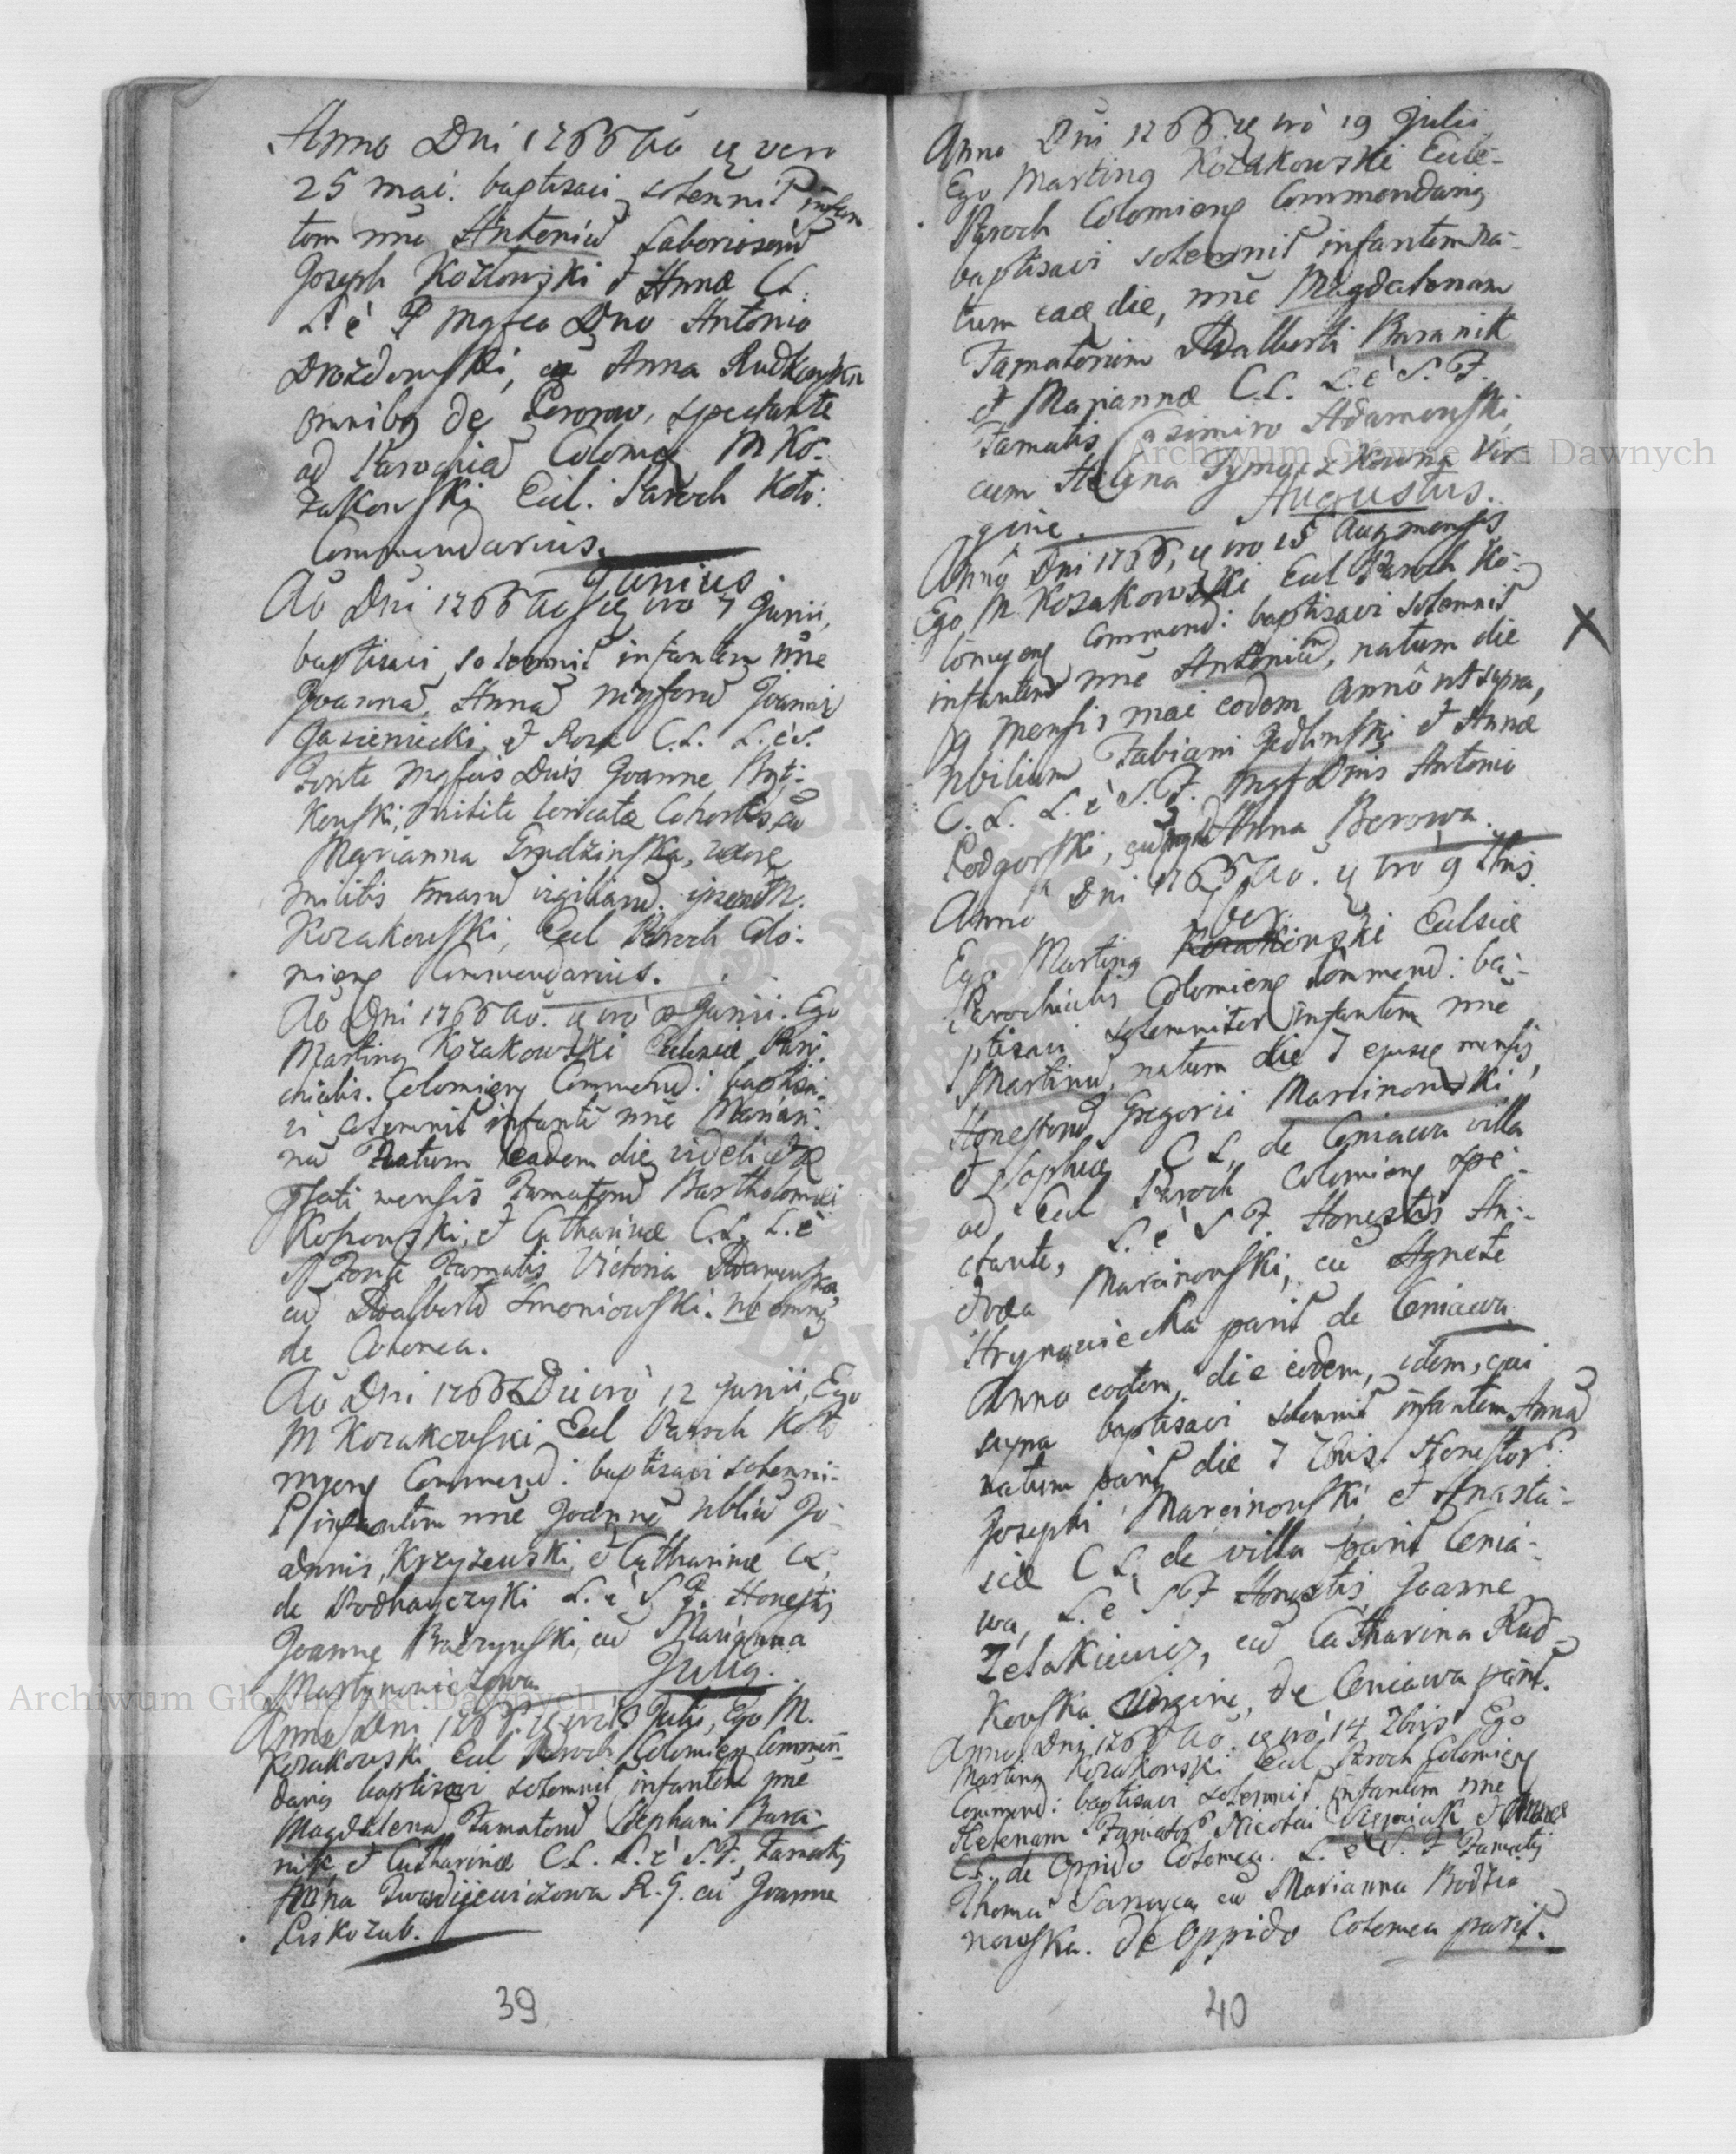 Anno Dni 1766 to ɋ vero
25 mai. baptisavi solennit infan
tem nne Antoniū Laboriosorū
Joseph Kozłowski et Annæ C. L.
L. è F Mgfco Dno Antonio
Drożdowski, cū Anna Rudkowska
omnibq de Peronow, spectante
ad Parochiā Colomey M Ko-
zakowski Eccl. Paroch Koło:
Commendarius.
Junius.
Aō Dni 1766 to ɋ vro 7 Junii,
baptisavi solennit infantem nne
Joannā, Annā Mgforū Joannis
Gasieniecki, et Rosæ C. L. L. è S.
Fonte Mgfcis Dnis Joanne
kowski, milite loricatæ Cohortis, cū
Marianna Grudzinska, uxore
militis
Kozakowski, Eccl Paroch Colo:
mieng Commendarius.
Aō Dni 1766 to. ɋ vrò 8 Junii. Ego
Marting Kozakowski Ecclesiæ Paro
chialis. Colomieng Commend: baptisa-
vi solemnit infantē nnē Marian:
nā Natum eadem die videlicet 8
pfati mensis Famatorū Bartholomæi
Kossowski, et Catharinæ C. L. L. è
S Fonte Famatis Victoria Adamowska,
cū Adalberto Smoniowski. nb omnes
de Colomea.
Aō Dni 1766 Die vrò 12 Junii, Ego
M Kozakowski Eccl Paroch Koło
myeng Commend: baptisavi solenni-
t infantem nnē Joannē Nbliū Jo-
annis, Krzyżewski, et Catharinæ C L,
de Podhayczyki L. è S F. Honestis
Joanne Baczynski, cū Marianna
Martynowiczowa
Julig.
Anno Dni 1766. ɋ vrò Julii, Ego M.
Kozakowski Eccl Paroch Colomieng Commen-
darig baptisavi solemnit infantem nnē
Magdalenā Famatorū Stephani Bara-
nik, et Catharinæ C. L. L. è S. F., Famatis
Anna Zwadijewiczowa R. G. cū Joanne
Liskozub.
39
Anno Dni 1766. ɋ vrò 19 Julii
Ego Marting Kozakowski Eccle-
Paroch Colomieng Commendarig
baptisavi solemnit infantem na-
tum eaɋ die, nnē Magdalenam
Famatorum Adalberti Baranik
et Mariannæ C. L. L. è S. F.
Famatis Casimiro Adamowski,
cum Helena Szymaszkowna Vir-
gine.
Augustus.
Annô Dni 1766, ɋ vro 15 Aug mensis
Ego M Kozakowski Eccl Paroch Ko-
lomyeng Commend: baptisavi solemnit
infantem nnē Antoniūm, natum die
19 mensis mai eodem annô ut supra,
Nbilium Fabiani Jedlinski et Annæ
C. L. L. è S. F. Mgf Dnis Antonio
Podgorski, cū Mgfa Anna Berowa.
Anno Dni 1766 to. ɋ vrò 9 7bris
Ego Marting Kozakowski Ecclsiæ
Parochialis Colomieng Commend: ba-
ptisavi solemniter infantem nnē
Martinū, natum die 7 ejusɋ mensis,
Honestorū Gregorii Marcinowski
et Sophiæ C L, de Ceniawa villa
ad Eccl Paroch Colomieng spe-
ctante, L. è S F Honestis An-
drea Marcinowski, cū Agnete
Hrynowiecka parit de Ceniawa.
Anno eodem, die eodem, idem, qui
supra baptisavi solemnit infantem Annā
natum parit die 7 7bris Honestor:
Josephi Marcinowski et Anasta-
siæ C L, de villa parit Cenia-
wa, L. è S F Honestis Joanne
Zelakiewicz, cū Catharina Rud-
kowska Virgine, de Ceniawa parit.
Anno Dni 1766 to. ɋ vrò 14 7bris Ego
Marting Kozakowski Eccl Paroch Colomieng
Commend: baptisavi solemnit infantem nne
Helenam Famator Nicolai et Annæ
C L. de Oppido Colomea. L. è S. F Famatis
Thoma Sanoyca, cū Marianna Bodzia
nowska. de Oppido Colomea parit.
40
Archiwum Główne Akt Dawnych
Archiwum Główne Akt Dawnych